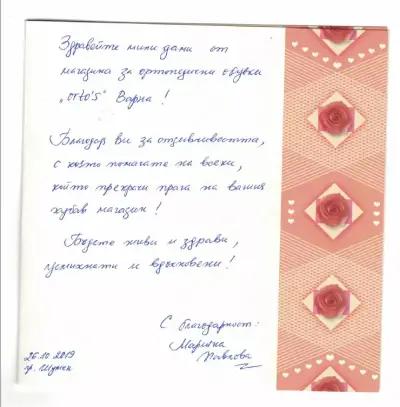 Здравейте мили дами от
магазина за ортопедични обувки
„orto's" Варна!
Благодаря Ви за отзивчивостта,
с която помагате на всеки,
който прекрачи прага на вашия
хубав магазин!
Бъдете живи и здрави,
усмихнати и вдъхновени!
С благодарност:
Марийка
Павлова
26.10.2019
гр. Шумен